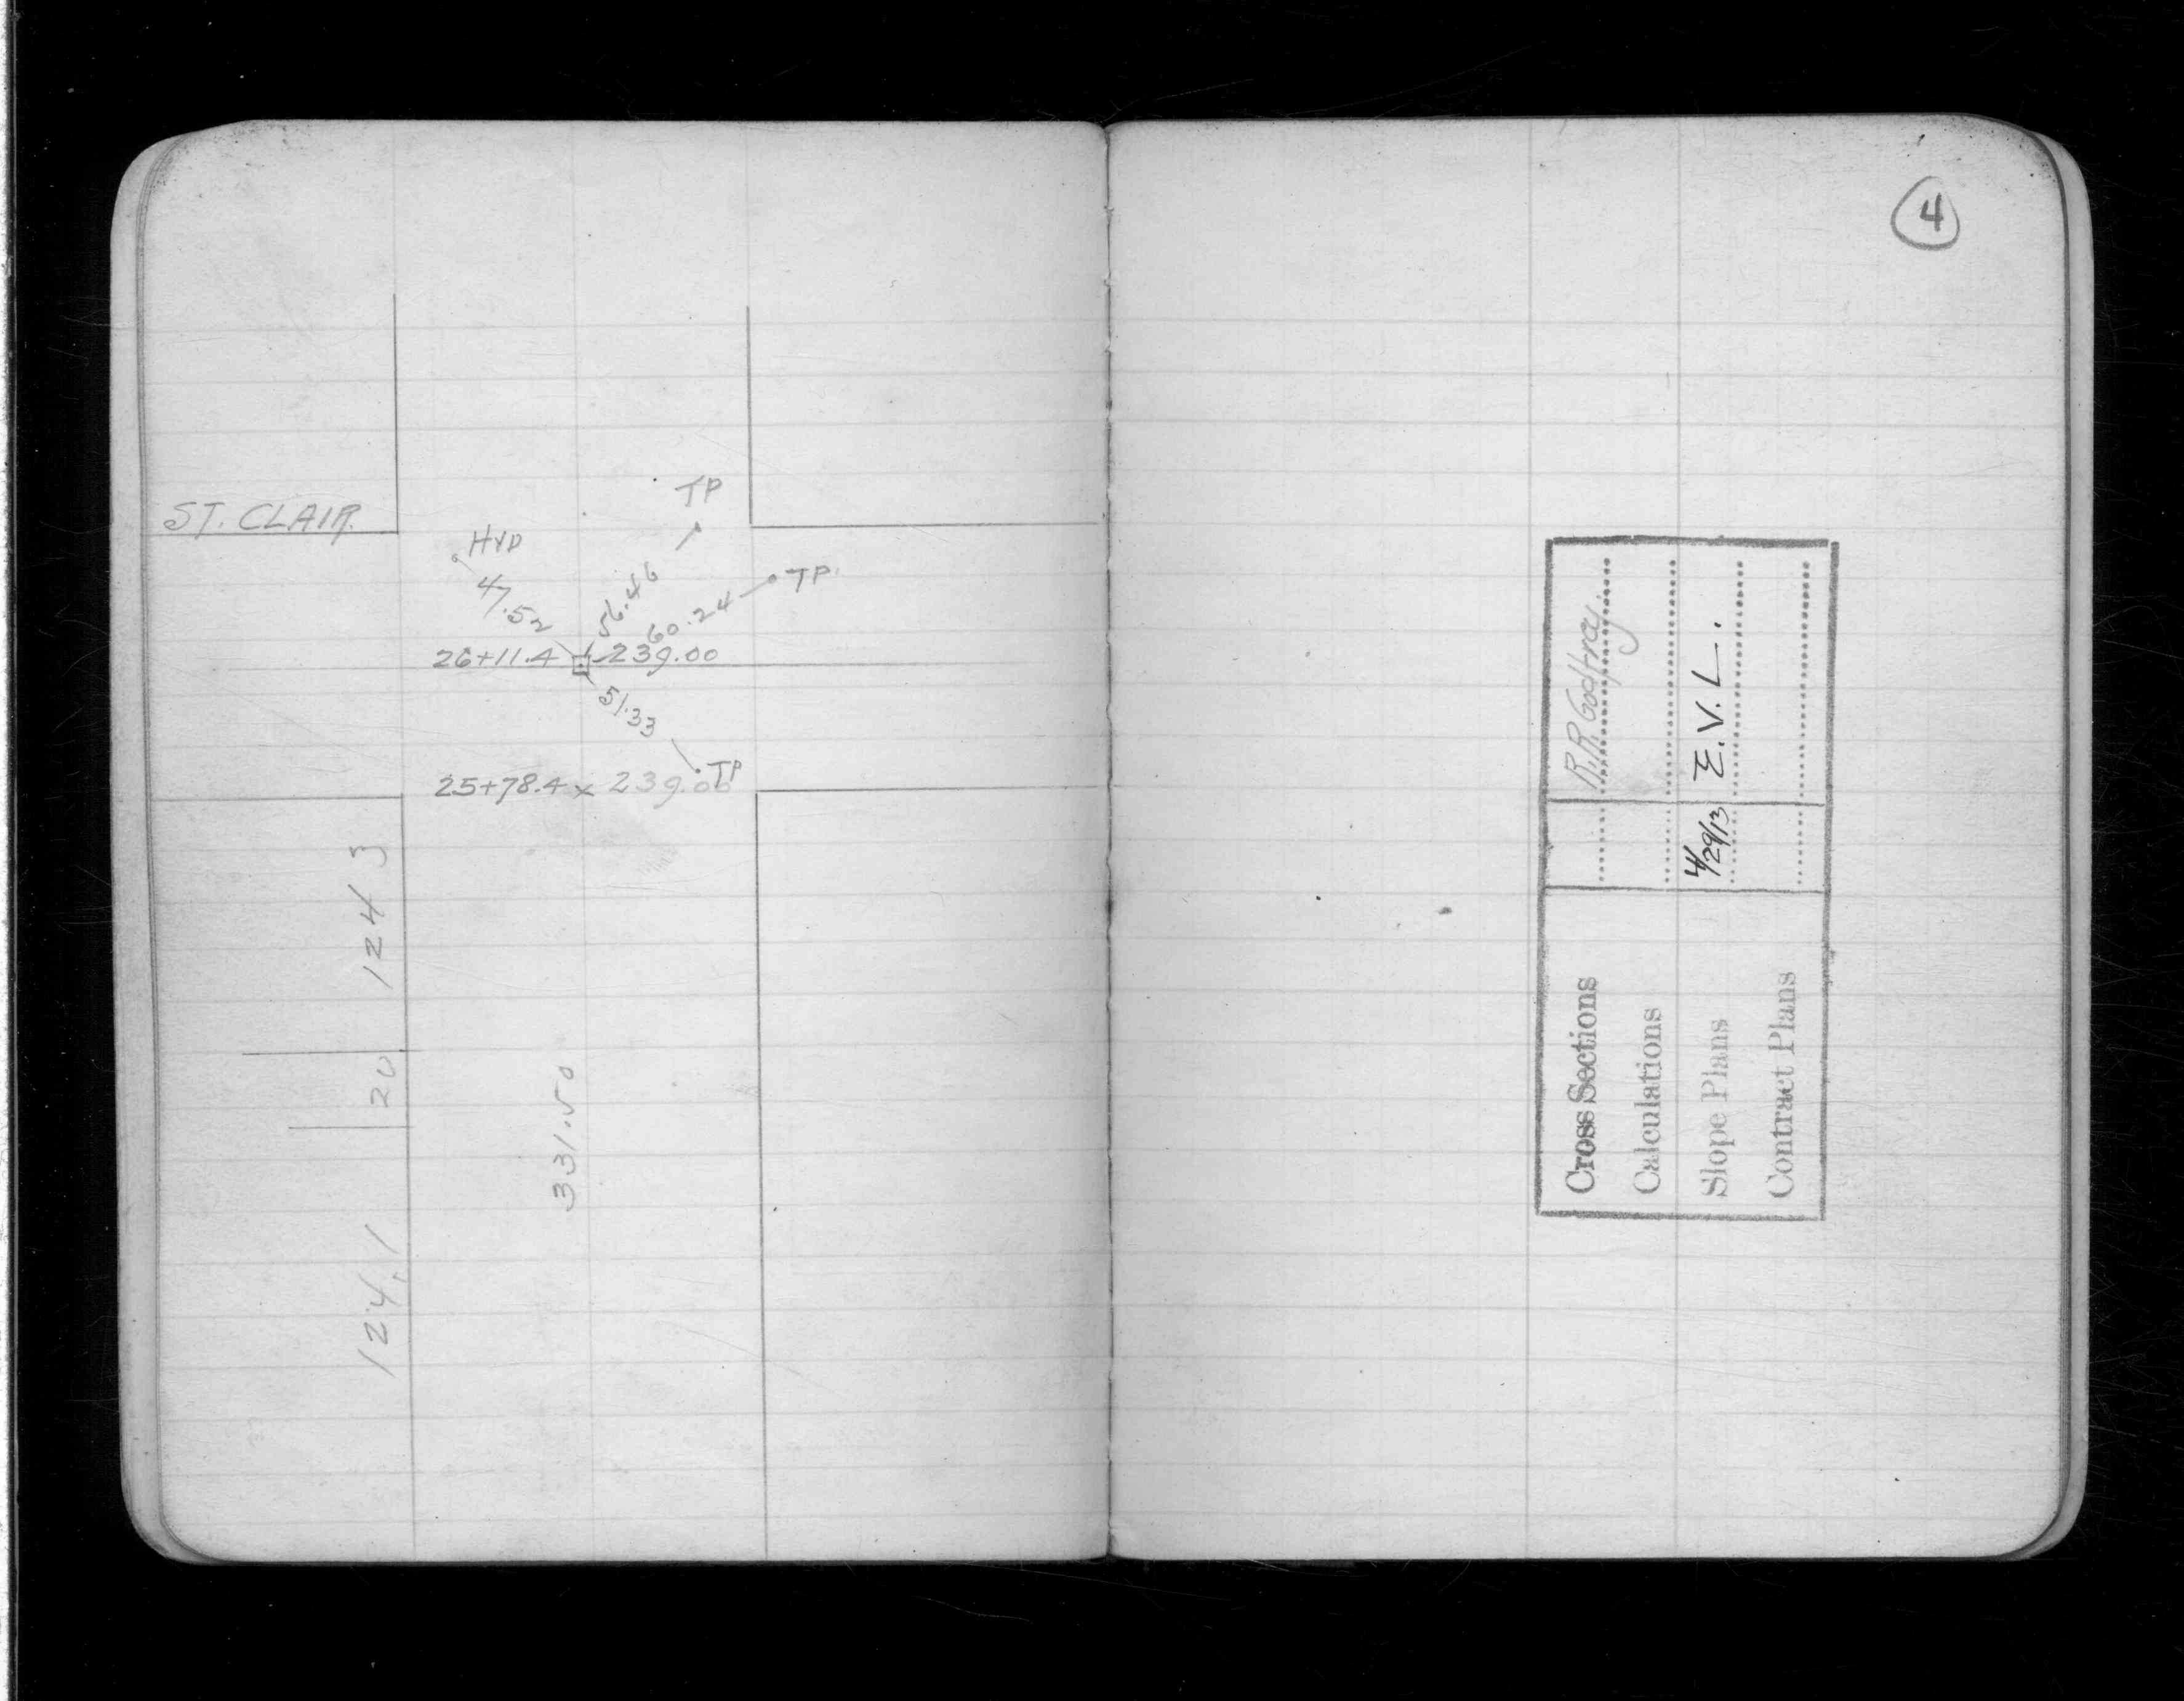 4
TP
ST. CLAIR.
HYD
TP
47.52
56.46
60.24
26+11.4 239.00
51.33
TP
25+78.4 x 239.00
124 3
20
331.50
124.1
Cross Sections R.R. Godfray
Calculations
Slope Plans 4/29/13 E.V.L.
Contract Plans